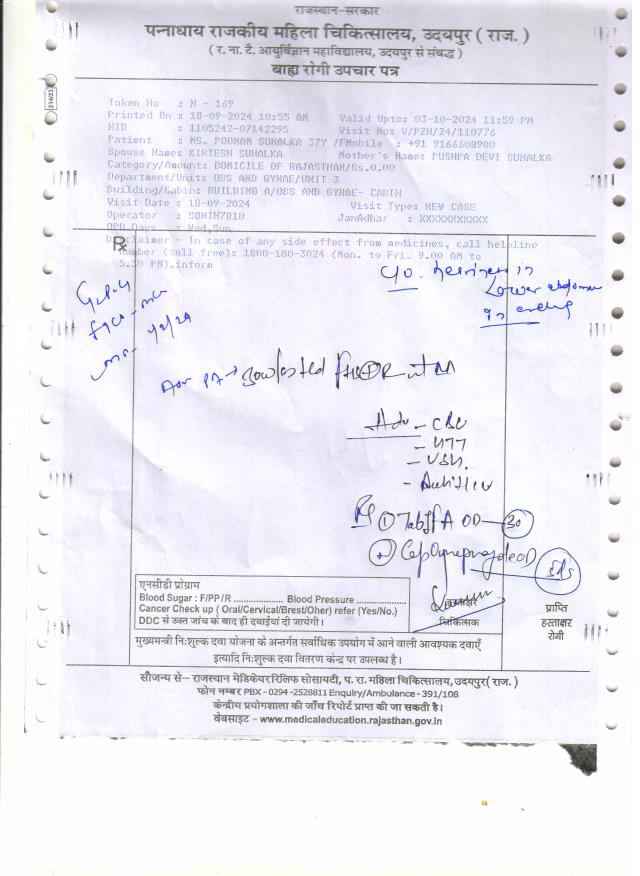 राजस्थान-सरकार
पन्नाधाय राजकीय महिला चिकित्सालय, उदयपुर ( राज. )
( र. ना. टै. आयुर्विज्ञान महाविद्यालय, उदयपुर से संबद्ध )
बाह्य रोगी उपचार पत्र
Token No : N - 169
Printed On : 18-09-2024 10:55 AM Valid Upto: 03-10-2024 11:59 PM
HID : 1105242-07142295 Visit No: V/PZH/24/110776
Patient : MS. POONAM SUHALKA 37Y /FMobile : +91 9166608900
Spouse Name: KIRTESH SUHALKA Mother's Name: PUSHPA DEVI SUHALKA
Category/Amount: DOMICILE OF RAJASTHAN/Rs.0.00
Department/Unit: OBS AND GYNAE/UNIT 3
Building/Cabin: BUILDING A/OBS AND GYNAE- CABIN
Visit Date : 18-09-2024 Visit Type: NEW CASE
Operator : SONIM7810 JanAadhar : XXXXXXXXXXX
OPD Days : Wed,Sun
Disclaimer - In case of any side effect from medicines, call helpline
number (toll free): 1800-180-3024 (Mon. to Fri. 9.00 AM to
5.30 PM).inform
Rx
C/o heaviness in
Lower abdomen
Adv - CBC
- VSG.
Rx ① Tab OD 30
② Cap OD 5ds
एनसीडी प्रोग्राम
Blood Sugar : F/PP/R .................... Blood Pressure ....................
Cancer Check up ( Oral/Cervical/Brest/Oher) refer (Yes/No.)
DDC से उक्त जांच के बाद ही दवाईयां दी जायेगी।
हस्ताक्षर
चिकित्सक
प्राप्ति
हस्ताक्षर
रोगी
मुख्यमन्त्री नि:शुल्क दवा योजना के अन्तर्गत सर्वाधिक उपयोग में आने वाली आवश्यक दवाएँ
इत्यादि नि:शुल्क दवा वितरण केन्द्र पर उपलब्ध है।
सौजन्य से– राजस्थान मेडिकेयर रिलिफ सोसायटी, प. रा. महिला चिकित्सालय, उदयपुर( राज. )
फोन नम्बर PBX - 0294 -2528811 Enquiry/Ambulance - 391/108
केन्द्रीय प्रयोगशाला की जाँच रिपोर्ट प्राप्त की जा सकती है।
वेबसाइट – www.medicaleducation.rajasthan.gov.in